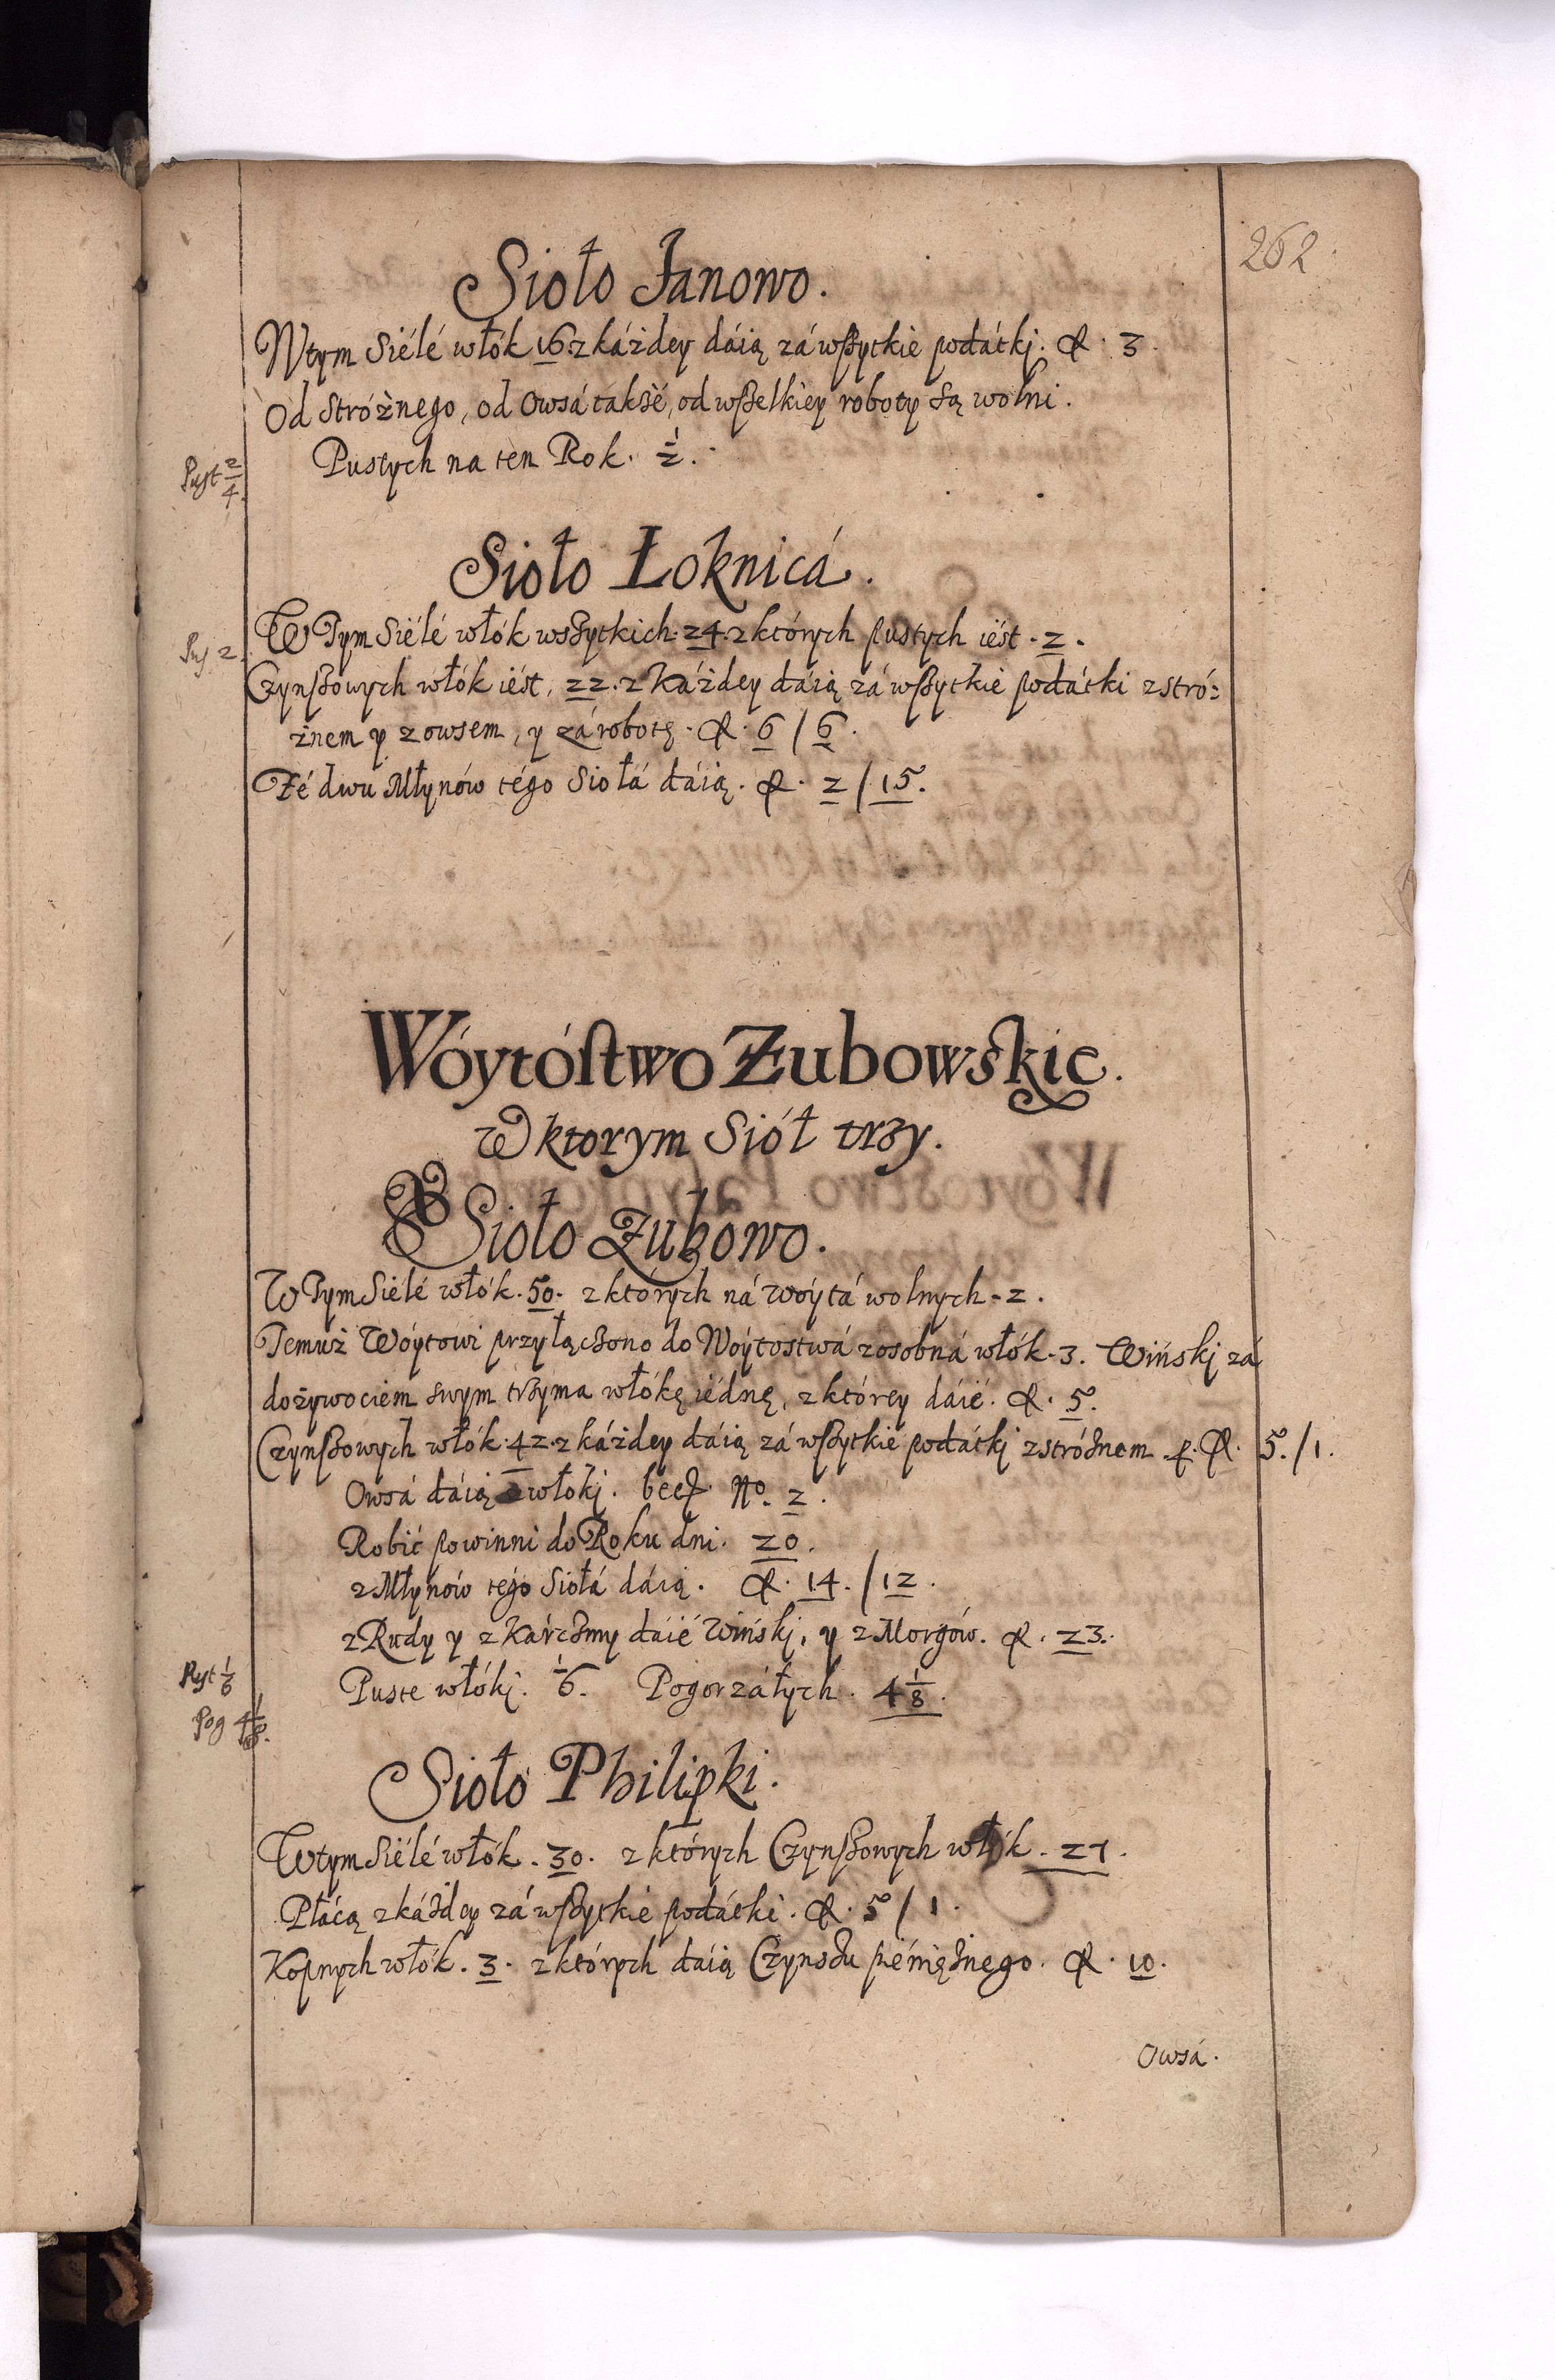 262
Sioło Janowo.
W tym Siélé włók 16. z káżdey dáią zá wßytkie podátkj. fl. 3.
Od Stróżnego, od Owsá taksé, od wßelkiey roboty są wolni.
Pustych na ten Rok. 1/2.
Pust 2/4.
Sioło Łoknicá.
W Tym Siélé włók wsßytkich. 24. z których pustych iést. 2.
Pus 2.
Czynßowych włók iést, 22. z káżdey dáią zá wßytkie podátki z stró=
żnem y z owsem, y zá robotę. fl. 6 / 6.
Zé dwu Młynów tégo Siołá dáią. fl. 2 / 15.
Wóytóstwo Zubowskie.
W ktorym Siół trzy.
Sioło Zubowo.
W Tym Siélé włók. 50. z których ná Wóytá wolnych. 2.
Temuż Wóytowi przyłączono do Wóytostwá zosobná włók. 3. Wińskj zá
dożywociem swym trzyma włókę iédnę, z którey dáié. fl. 5.
Czynßowych włók. 42. z káżdey dáią zá wßytkie podátkj z stróżnem. fl. 5. / 1.
Owsá dáią z włókj. becz. No. 2.
Robić powinni do Roku dni. 20.
z Młynów tégo Siołá dáią. fl. 14. / 12.
z Rudy y z Kárczmy dáié Wińskj, y z Morgów. fl. 23.
Puste włókj. 1/6. Pogorzáłych. 4 1/8.
Pust 1/6
Pog 4 1/8.
Sioło Philipki.
W tym Siélé włók. 30. z których Czynßowych włók. 27.
Płácą z káżdey zá wßytkie podátki. fl. 5 / 1.
Kopnych włók. 3. z których dáią Czynszu piéniężnego. fl. 10.
Owsá.